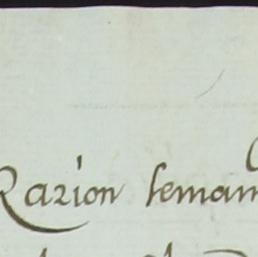 Razion seman